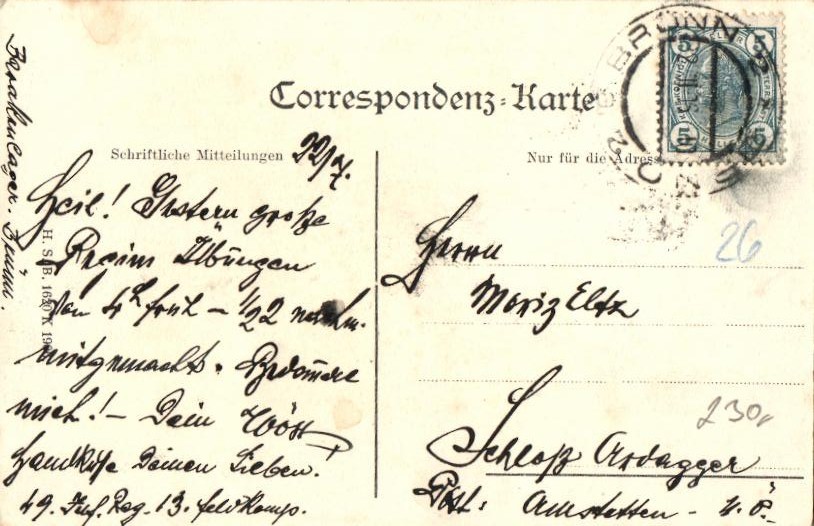 Correspondenz-Karte
Schriftliche Mitteilungen
22/7.
Nur für die Adress
Heil! Gestern große
Regim Übungen
von 4h früh – 1/2 2 nachm.
mitgemacht. Bedauere
mich! – Dein
Handküße Deinen Lieben!
49. Inf. Reg. 13. Feldkomp.
Barakenlager. Brünn.
H. S. B. 1620 K 190
Herrn
Moriz Eltz
Schloß Ardagger
Post: Amstetten – N. Ö.
BRÜNN
5 5
5 5
26
230,